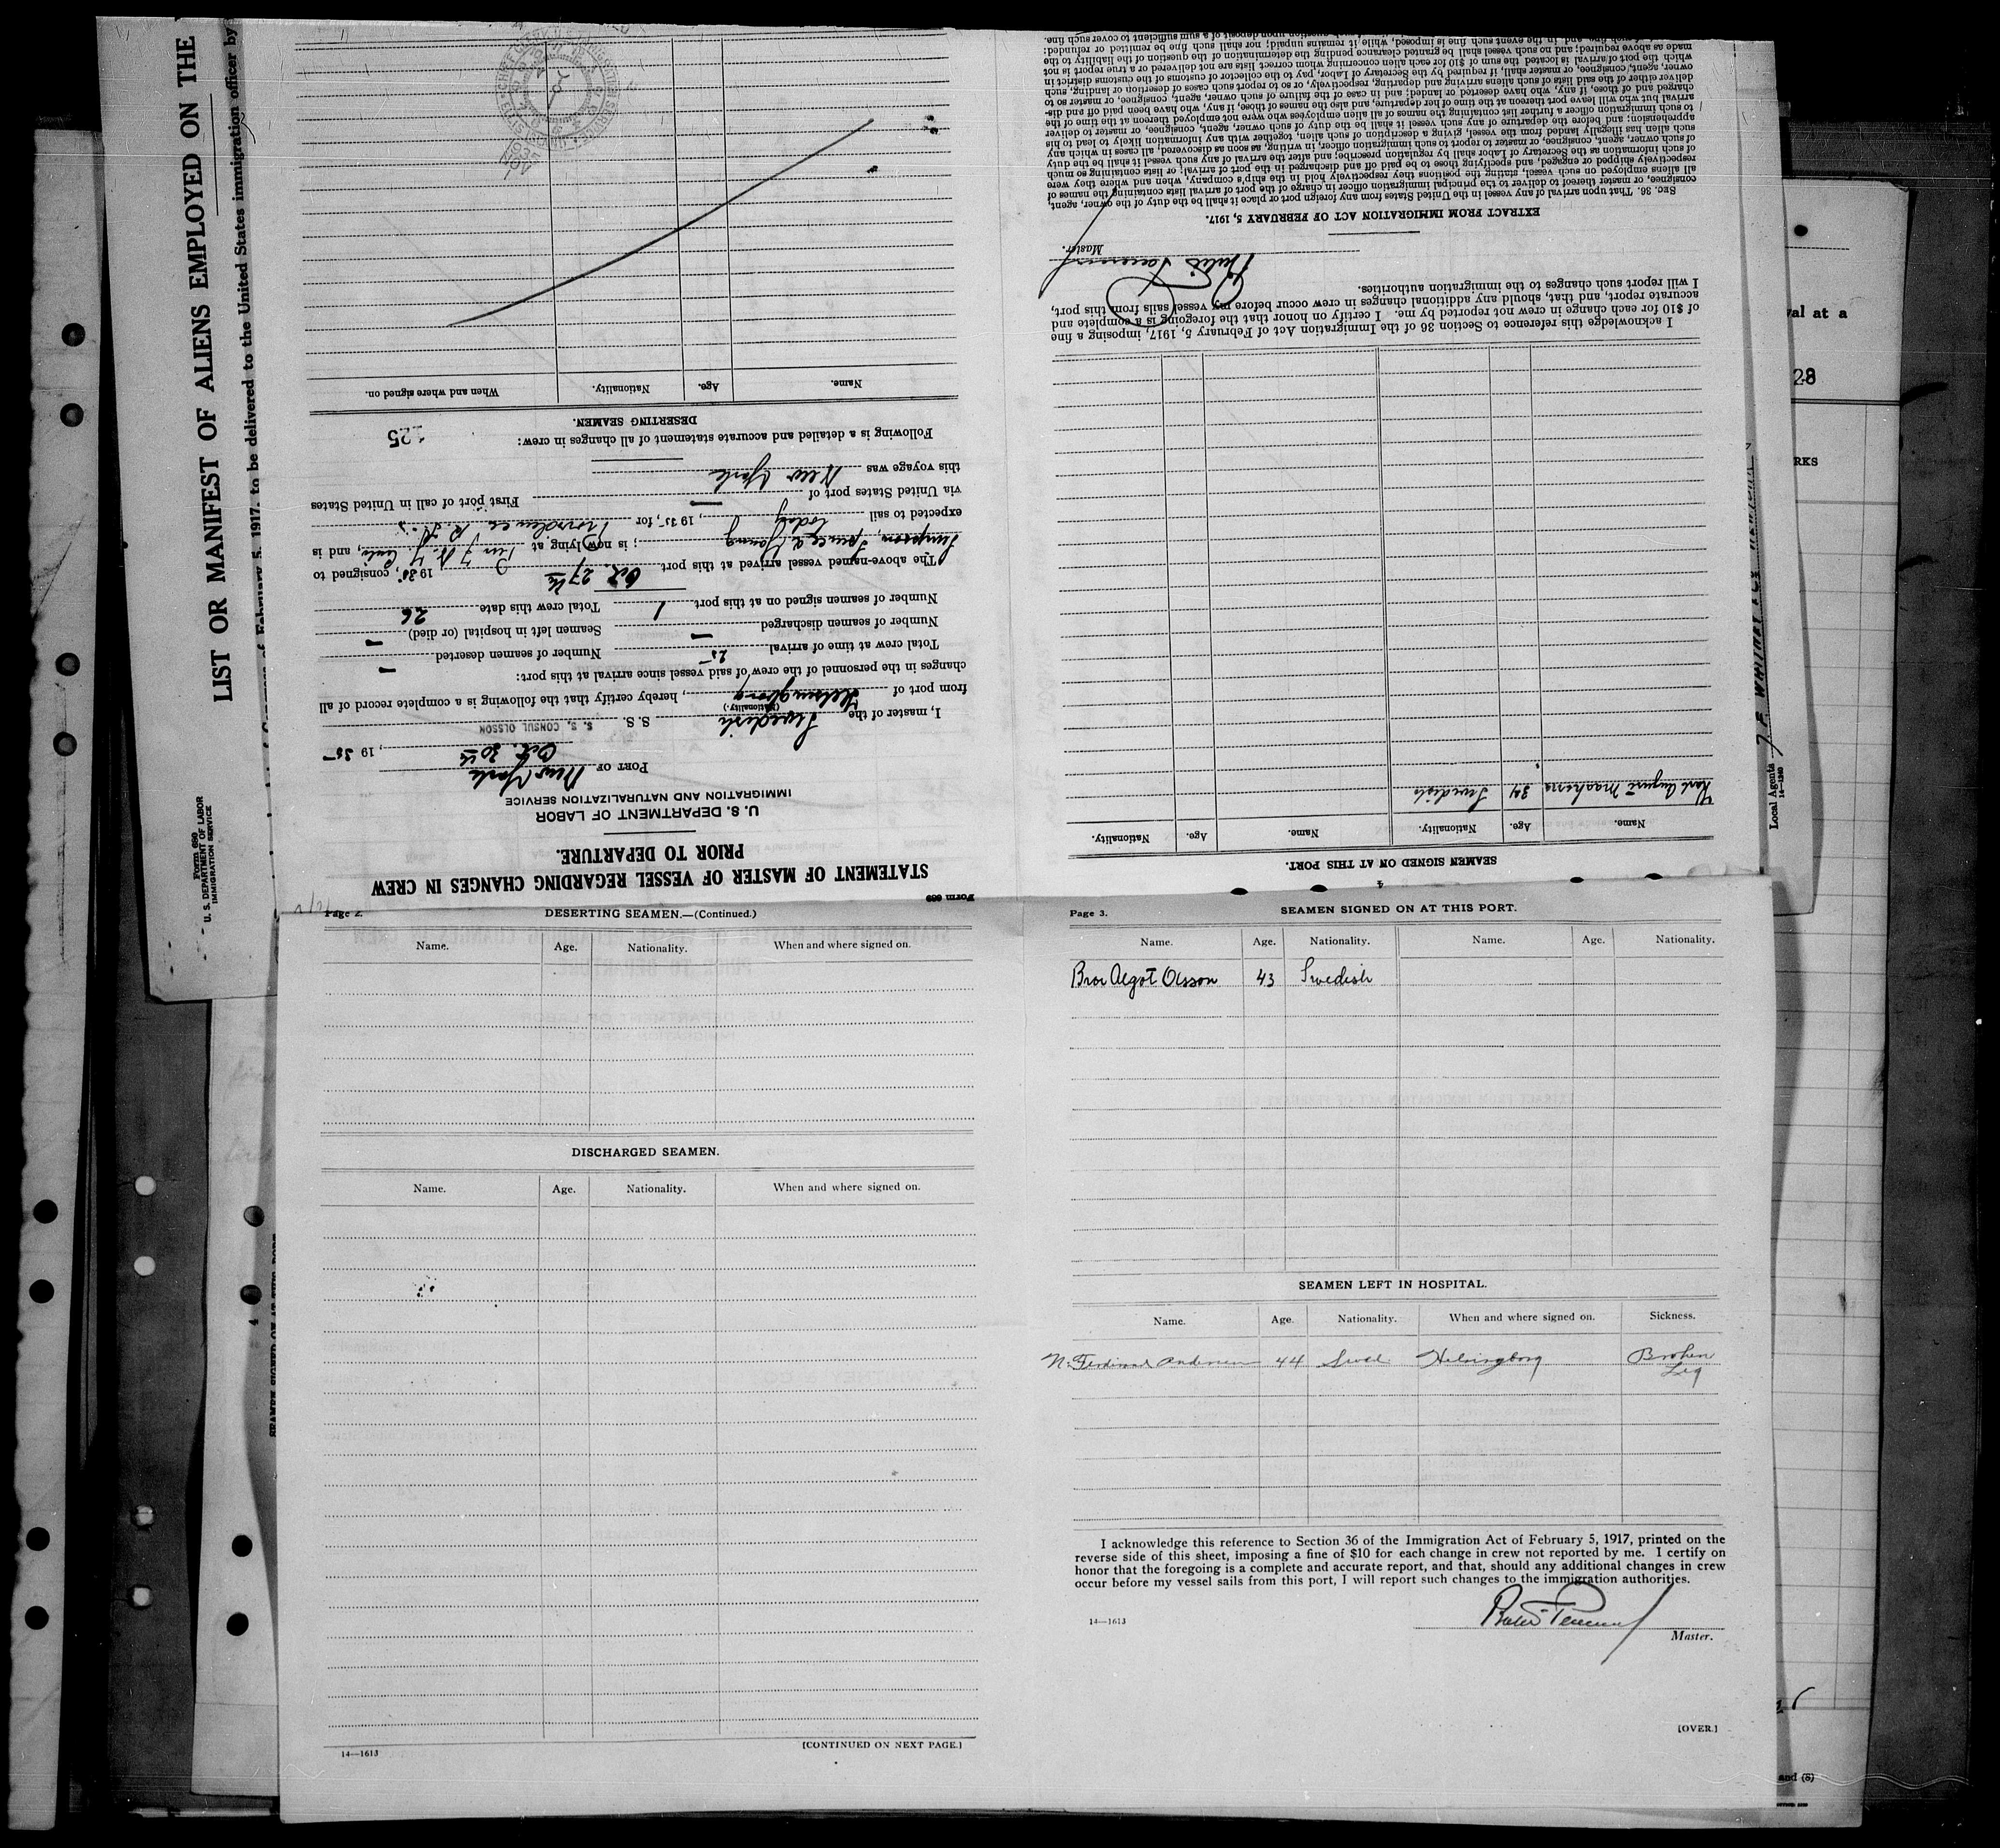 LIST OR MANIFEST OF ALIENS EMPLOYED ON THE
to be delivered to the United States immigration officer by
Form 680
U. S. DEPARTMENT OF LABOR
IMMIGRATION SERVICE
Form 689
STATEMENT OF MASTER OF VESSEL REGARDING CHANGES IN CREW
PRIOR TO DEPARTURE.
U. S. DEPARTMENT OF LABOR
IMMIGRATION AND NATURALIZATION SERVICE
PORT OF New York
Oct. 30th, 1935
I, master of the Swedish S. S. S. S. CONSUL OLSSON
(Nationality.)
from port of Helsingborg, hereby certify that the following is a complete record of all
changes in the personnel of the crew of said vessel since arrival at this port:
Total crew at time of arrival 25 Number of seamen deserted —
Number of seamen discharged — Seamen left in hospital (or died) —
Number of seamen signed on at this port 1 Total crew this date 26
The above-named vessel arrived at this port Oct. 27th, 1935, consigned to
Simpson, Spence & Young; is now lying at Pier 7 , and is
expected to sail today, 1935, for Providence R. I.
via United States port of — First port of call in United States
this voyage was New York
Following is a detailed and accurate statement of all changes in crew:
125
DESERTING SEAMEN.
Name. Age. Nationality. When and where signed on.
4
SEAMEN SIGNED ON AT THIS PORT.
Name. Age. Nationality. Name. Age. Nationality.
Karl August 34 Swedish
I acknowledge this reference to Section 36 of the Immigration Act of February 5, 1917, imposing a fine
of $10 for each change in crew not reported by me. I certify on honor that the foregoing is a complete and
accurate report, and that, should any additional changes in crew occur before my vessel sails from this port,
I will report such changes to the immigration authorities.
Master.
EXTRACT FROM IMMIGRATION ACT OF FEBRUARY 5, 1917.
Sec. 36. That upon arrival of any vessel in the United States from any foreign port or place it shall be the duty of the owner, agent,
consignee, or master thereof to deliver to the principal immigration officer in charge of the port of arrival lists containing the names of
all aliens employed on such vessel, stating the positions they respectively hold in the ship's company, when and where they were
respectively shipped or engaged, and specifying those to be paid off and discharged in the port of arrival; or lists containing so much
of such information as the Secretary of Labor shall by regulation prescribe; and after the arrival of any such vessel it shall be the duty
of such owner, agent, consignee, or master to report to such immigration officer, in writing, as soon as discovered, all cases in which any
such alien has illegally landed from the vessel, giving a description of such alien, together with any information likely to lead to his
apprehension; and before the departure of any such vessel it shall be the duty of such owner, agent, consignee, or master to deliver
to such immigration officer a further list containing the names of all alien employees who were not employed thereon at the time of the
arrival but who will leave port thereon at the time of her departure, and also the names of those, if any, who have been paid off and dis-
charged and of those, if any, who have deserted or landed; and in case of the failure of such owner, agent, consignee, or master so to
deliver either of the said lists of such aliens arriving and departing, respectively, or so to report such cases of desertion or landing, such
owner, agent, consignee, or master, shall, if required by the Secretary of Labor, pay to the collector of customs of the customs district in
which the port of arrival is located the sum of $10 for each alien concerning whom correct lists are not delivered or a true report is not
made as above required; and no such vessel shall be granted clearance pending the determination of the question of the liability to the
payment of such fine, and, in the event such fine is imposed, while it remains unpaid; nor shall such fine be remitted or refunded:
Local Agents J. F. WHITNEY
val at a
28
RKS
Page 2. DESERTING SEAMEN.—(Continued.)
Name. Age. Nationality. When and where signed on.
DISCHARGED SEAMEN.
Name. Age. Nationality. When and where signed on.
14—1613 [CONTINUED ON NEXT PAGE.]
Page 3. SEAMEN SIGNED ON AT THIS PORT.
Name. Age. Nationality. Name. Age. Nationality.
Bror Algot Olsson 43 Swedish
SEAMEN LEFT IN HOSPITAL.
Name. Age. Nationality. When and where signed on. Sickness.
N. Ferdinand Andersen 44 Swed Helsingborg Broken
Leg
I acknowledge this reference to Section 36 of the Immigration Act of February 5, 1917, printed on the
reverse side of this sheet, imposing a fine of $10 for each change in crew not reported by me. I certify on
honor that the foregoing is a complete and accurate report, and that, should any additional changes in crew
occur before my vessel sails from this port, I will report such changes to the immigration authorities.
14—1613
Master.
[OVER.]
and (8)